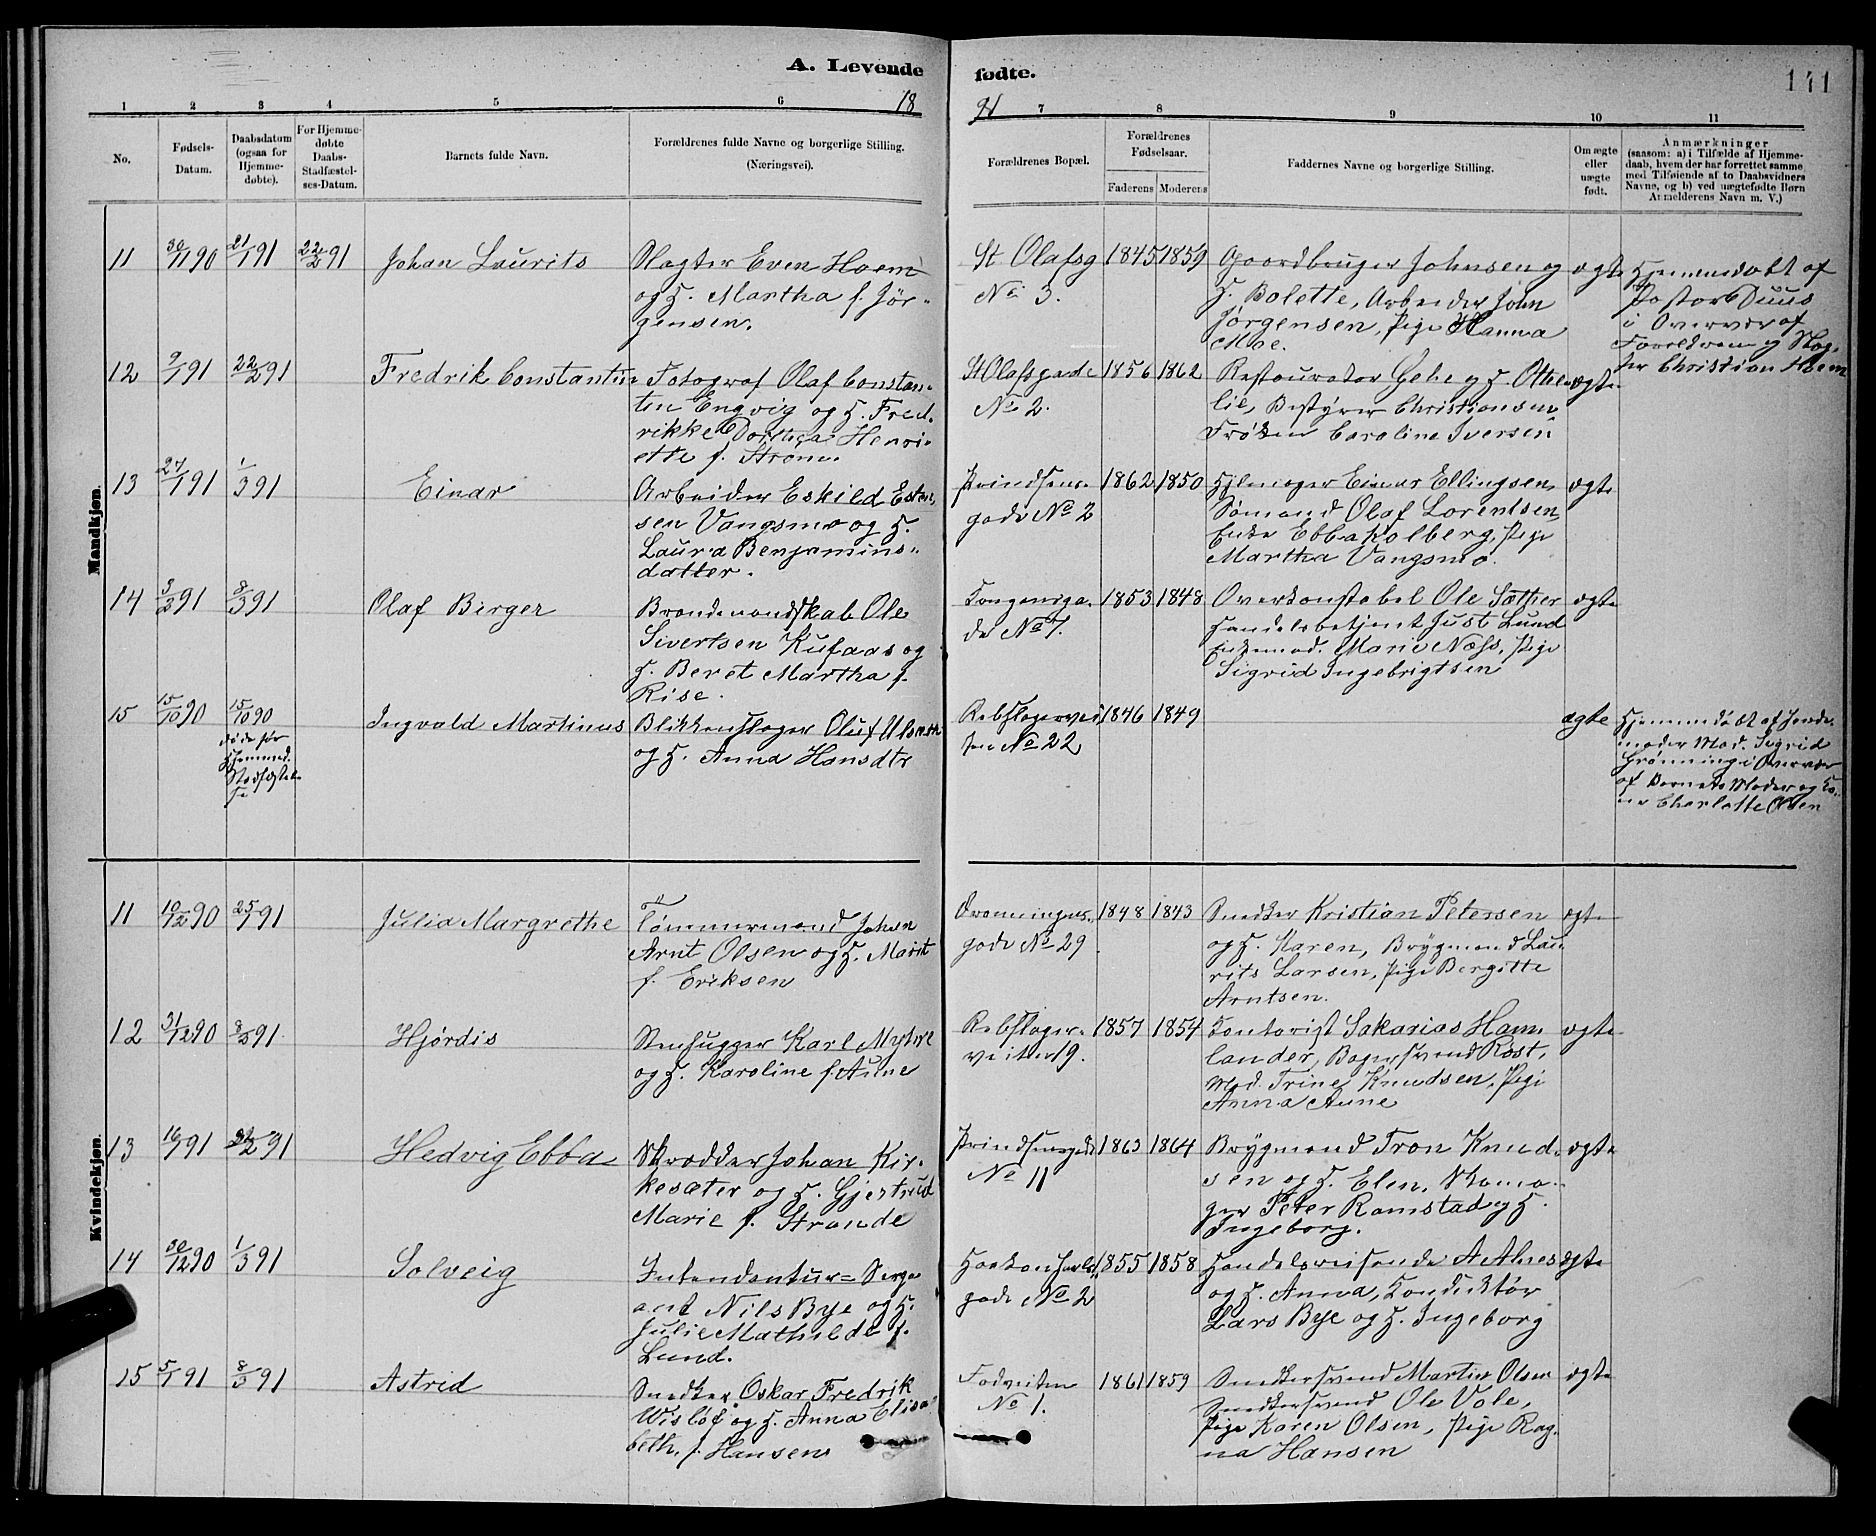 A. Levende fødte.
1891
141
1 2 3 4 5 6 7 8 9 10 11
No.
Fødsels-Datum.
Daabsdatum (ogsaa for Hjemme-døbte).
For Hjemme-døbte Daabs-Stadfæstel-ses-Datum.
Barnets fulde Navn.
Forældrenes fulde Navne og borgerlige Stilling. (Næringsvei).
Forældrenes Bopæl.
Forældrenes Fødselsaar.
Faderens Moderens
Faddernes Navne og borgerlige Stilling.
Om ægte eller uægte født.
Anmærkninger
(saasom: a) i Tilfælde af Hjemme-
daab, hvem der har forrettet samme
med Tilføiende af to Daabsvidners
Navne, og b) ved uægtefødte Børn
Anmelderens Navn m. V.)
Mandkjøn.
11 30/11 90 21/1 91 22/2 91 Johan Laurits
Slagter Even Hoem
og H. Martha f. Jør-
gensen.
St Olafsg
No 3.
1845 1859
Gaardbruger Johnsen og
H. Bolette, Arbeider John
Jørgensen, Pige Hanna
Moe.
ægte
Hjemmedøbt af
Pastor Duus
i Overvær af
Forældrene og Slag-
ter Christian Hoem
12 9/1 91 22/2 91 Fredrik Constantin
Fotograf Olaf Constan-
tin Engvig og H. Fred-
rikke Dorthea Henri-
ette f. Strøm.
St Olafsgade
No 2.
1856 1862
Restauratør Gehe og H. Othe-
lie, Bestyrer Christiansen
Frøken Caroline Iversen
ægte
13 27/1 91 1/3 91 Einar
Arbeider Eskild Esten-
sen Vangsmo og H.
Laura Benjamins-
datter.
Prindsens-
gade No 2
1862 1850
Hjulmager Einar Ellingsen
Sømand Olaf Lorentsen
Enke Ebba Kolberg, Pige
Martha Vangsmo.
ægte
14 3/2 91 8/3 91 Olaf Birger
Brandmandskab Ole
Sivertsen Kufaas og
H. Beret Martha f.
Rise.
Kongensga-
de No 7.
1853 1848
Overkonstabel Ole Sæther
Handelsbetjent Just Lund
Enkemad. Marie Næss, Pige
Sigrid Ingebrigtsen
ægte
15 15/10 90 15/10 90
døde før
Hjemmed.
Stadfæstel-
se
Ingvald Martinus
Blikkenslager Oluf
og H. Anna Hansdtr
Rebslagervei-
ten No 22
1846 1849
ægte
Hjemmedøbt af Jorde-
moder Mad. Sigrid
Grønning i Overvær
af Barnets Moder og Ko-
ne Charlotte Olsen
Kvindekjøn.
11 10/12 90 25/1 91 Julia Margrethe
Tømmermand Johan
Arnt Olsen og H. Marit
f. Eriksen
Dronningens-
gade No 29
1848 1843
Snedker Kristian Petersen
og H. Karen, Brygmand Lau-
rits Larsen, Pige Bergitte
Arntsen.
ægte
12 31/12 90 8/2 91 Hjørdis
Stenhugger Karl Myhre
og H. Karoline f. Aune
Rebslager-
veiten 19.
1857 1854
Kontorist Sakarias Ham-
lander, Bagersvend Rost,
Mad. Trine Knudsen, Pige
Anna Aune
ægte
13 16/1 91 22/2 91 Hedvig Ebba
Skrædder Johan Kir-
kesæter og H. Gjertrud
Marie f. Strande
Prindsensgade
No 11
1863 1864
Brygmand Tron Knud-
sen og H. Elen, Skoma-
ger Peter Ramstad og H.
Ingeborg.
ægte
14 30/12 90 1/3 91 Solveig
Intendantur-Serge-
ant Nils Bye og H.
Julie Mathilde f.
Lund.
Haakon Jarls-
gade No 2
1855 1858
Handelsreisende A Alnes
og H. Anna, Konduktør
Lars Bye og H. Ingeborg
ægte
15 5/1 91 8/3 91 Astrid
Snedker Oskar Fredrik
Wisløf og H. Anna Elisa-
beth f. Hansen
Fadveiten
No 1.
1861 1859
Snedkersvend Martin Olsen
Snedkersvend Ole Vole,
Pige Karen Olsen, Pige Rag-
na Hansen
ægte